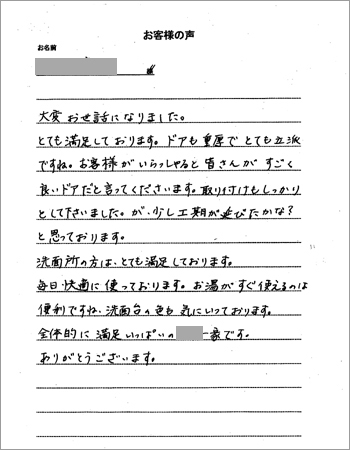 お客様の声
お名前
様
大変お世話になりました。
とても満足しております。ドアも重厚でとても立派
ですね。お客様がいらっしゃると皆さんがすごく
良いドアだと言ってくださいます。取り付けもしっかり
として下さいました。が、少し工期が延びたかな？
と思っております。
洗面所の方は、とても満足しております。
毎日快適に使っております。お湯がすぐ使えるのは
便利ですね、洗面台の色も気にいっております。
全体的に満足いっぱいの一家です。
ありがとうございます。